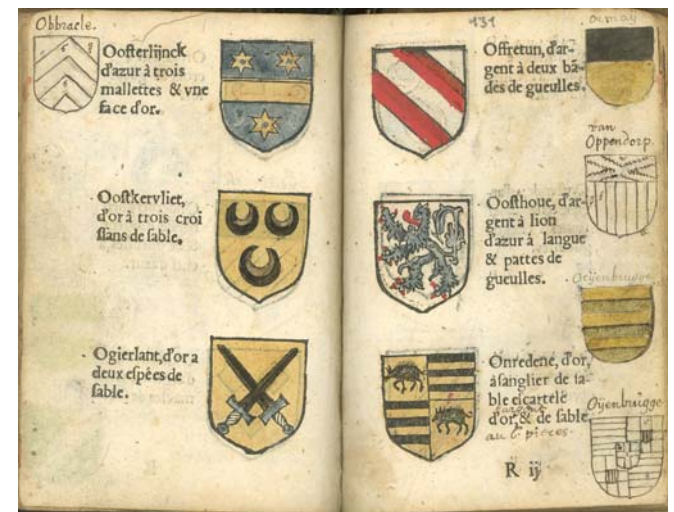 Obbracle.
Oosterlijnck
d'azur à trois
mallettes & vne
face d'or.
Oostkervliet,
d'or à trois croi
ssans de sable.
Ogierlant, d'or a
deux espées de
sable.
131
Offretun, d'ar-
gent à deux bā-
des de gueulles.
van
Oppendorp.
Oosthoue, d'ar-
gent à lion
d'azur à langue
& pattes de
gueulles.
Onredene, d'or,
à sanglier de sa-
ble escartelé
d'or, & de sable
au 6. pieces.
Oÿenbrugge
R ij